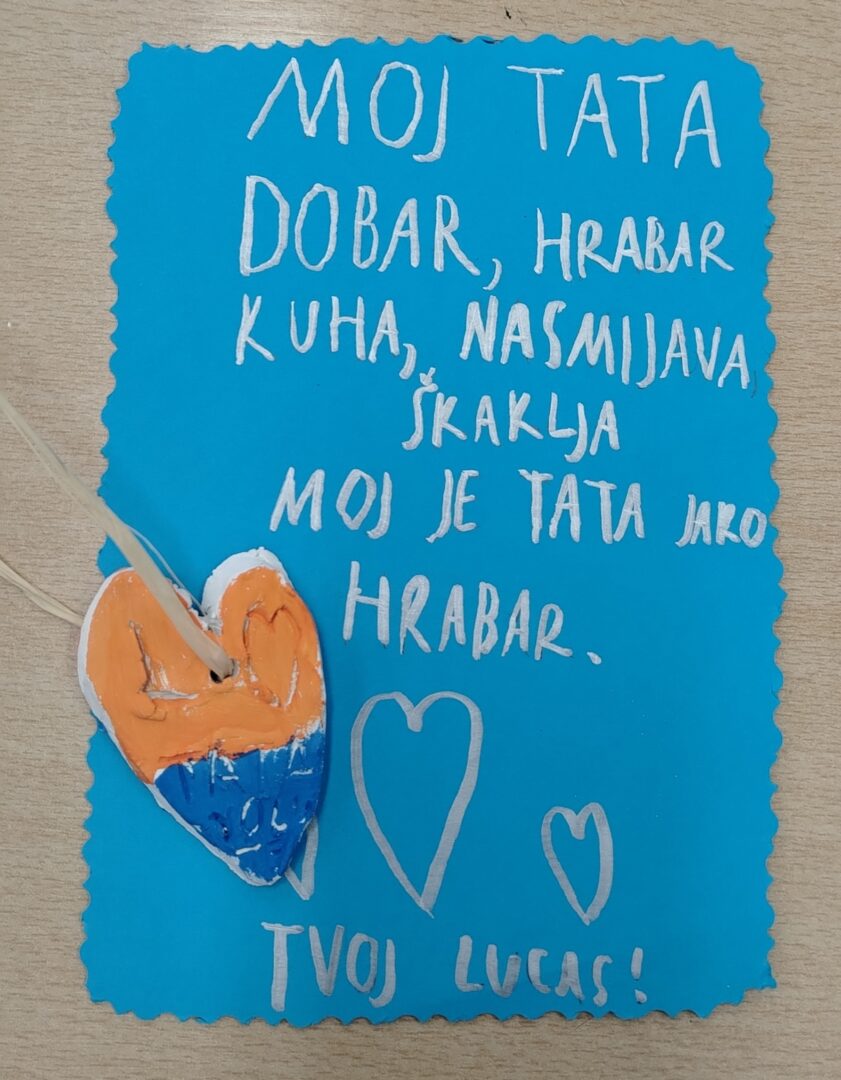 MOJ TATA
DOBAR, HRABAR
KUHA, NASMIJAVA,
ŠKAKLJA
MOJ JE TATA JAKO
HRABAR.
TVOJ LUCAS!